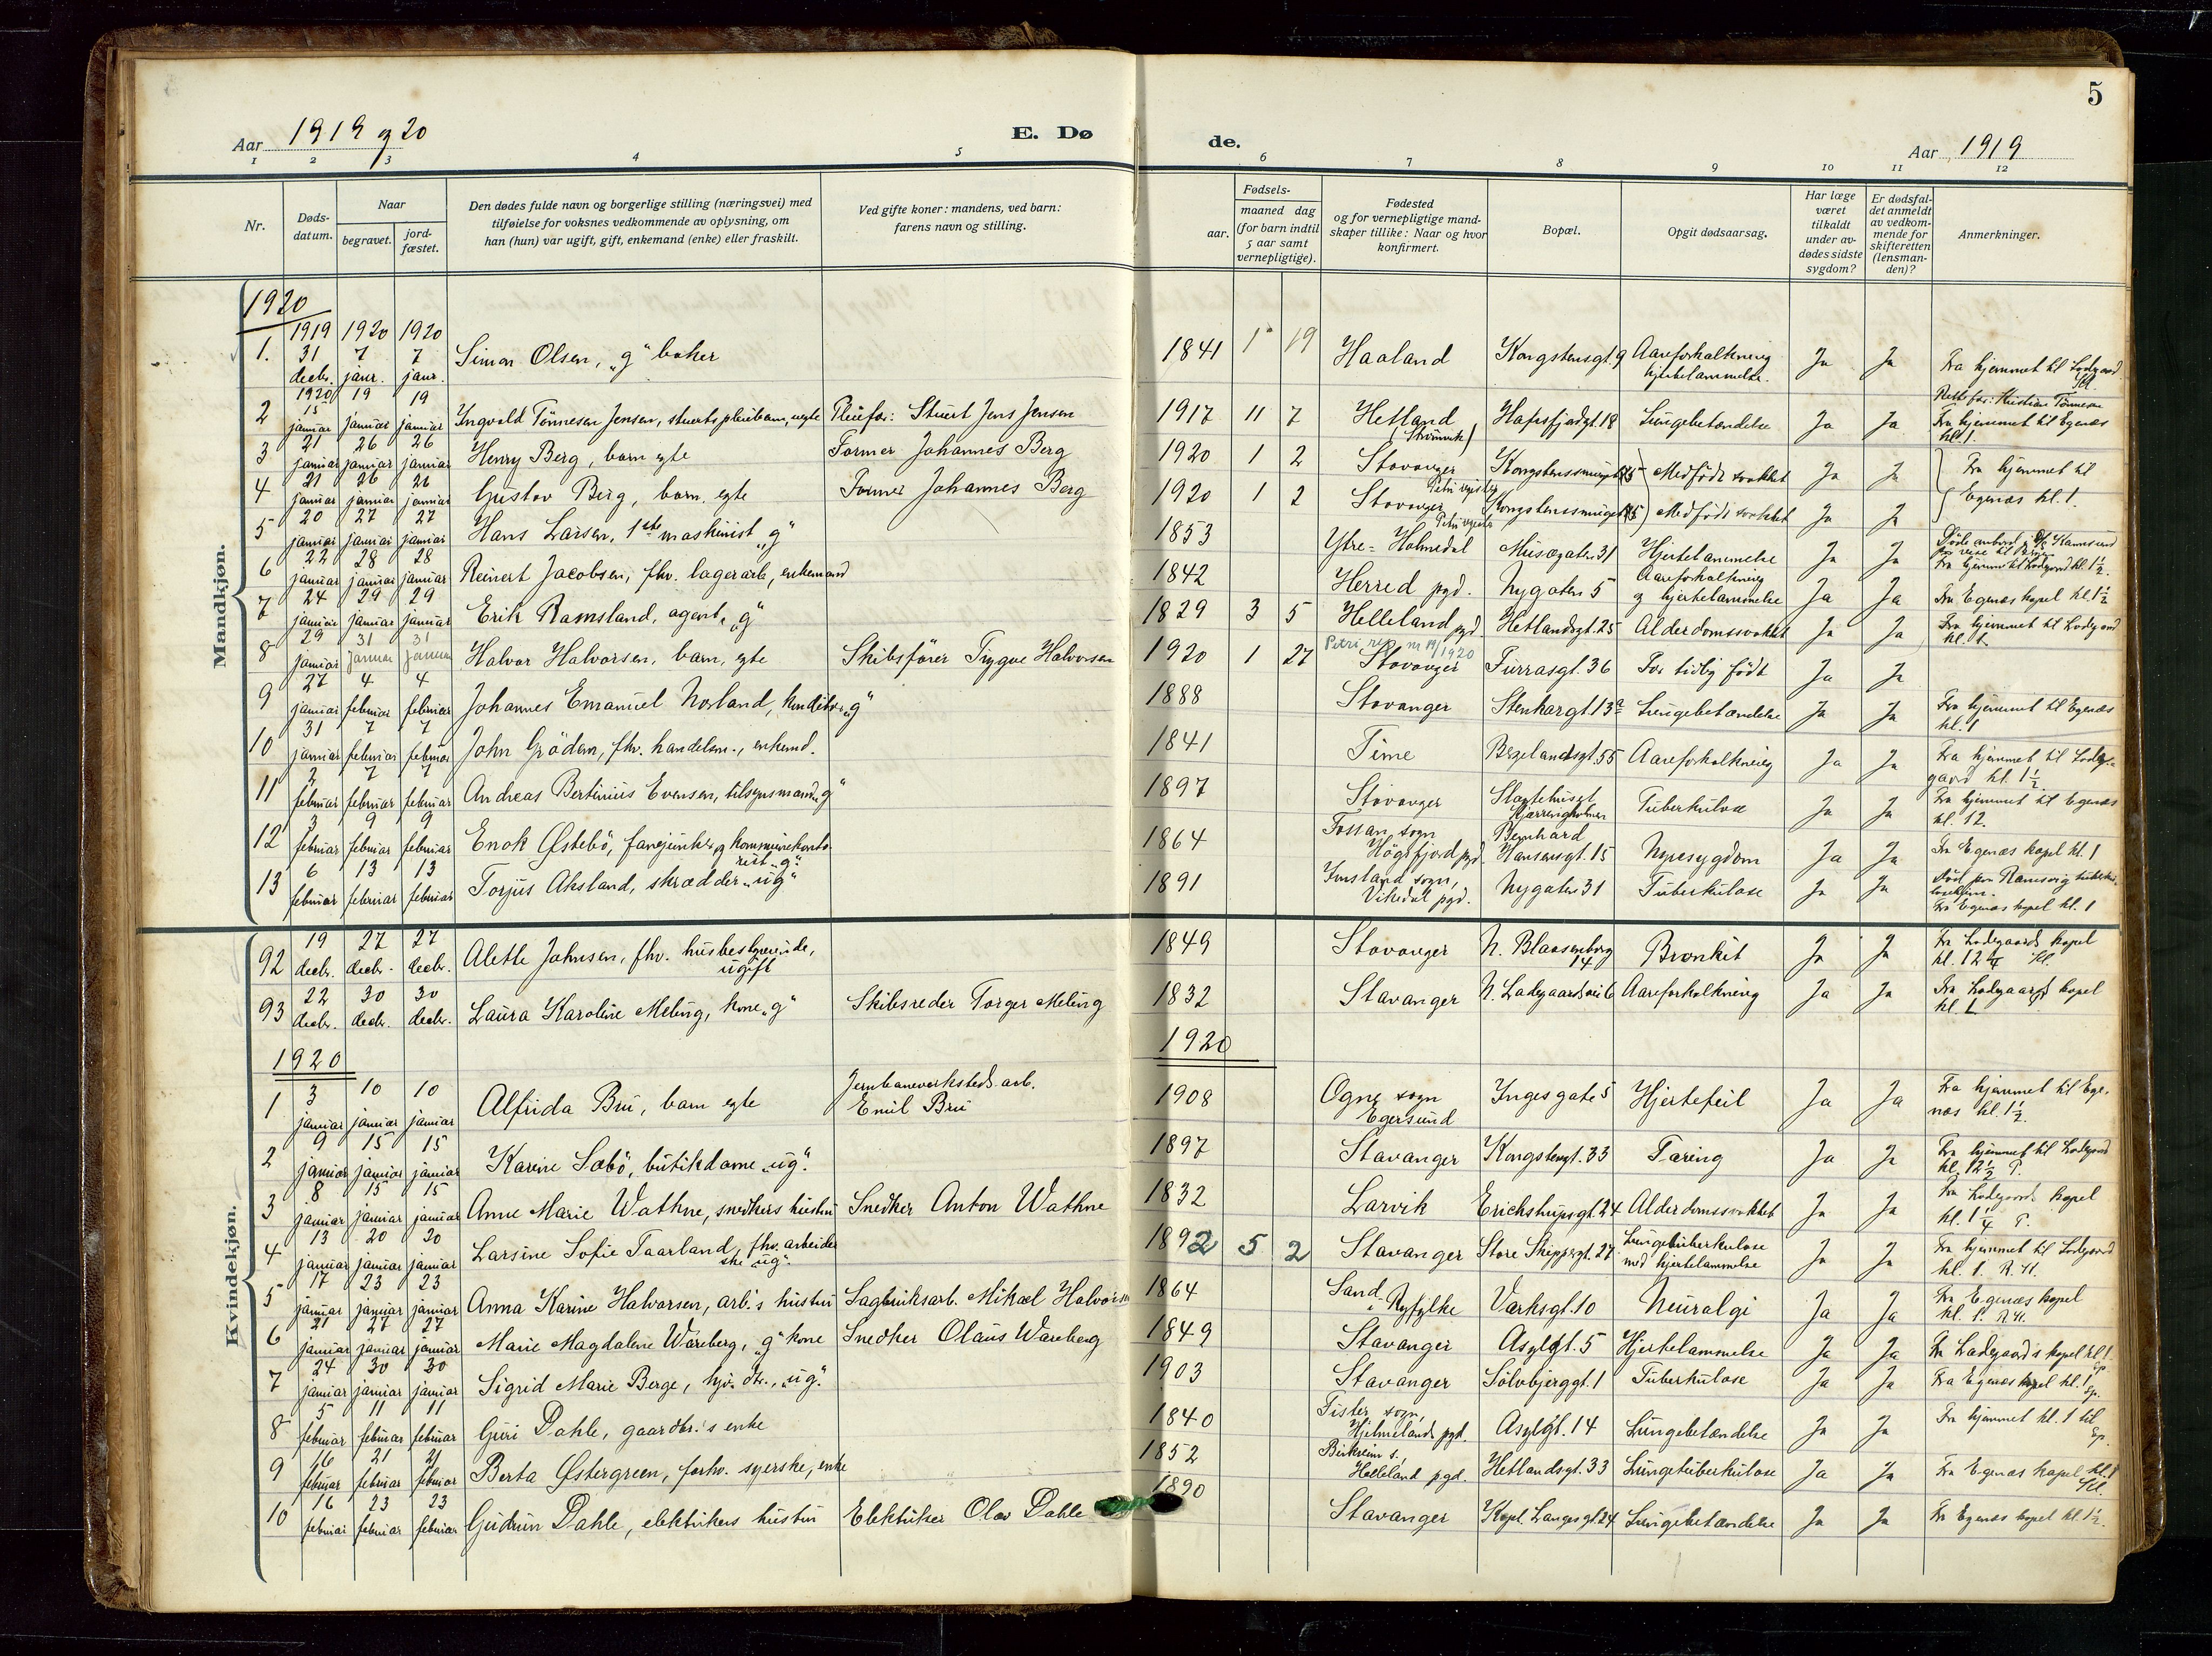 5
Aar 1919 og 20
E. Dø
de.
Aar 1919
1 2 3 4 5 6 7 8 9 10 11 12
Nr.
Døds-datum.
Naar
begravet.
jord-fæstet.
Den dødes fulde navn og borgerlige stilling (næringsvei) med tilføielse for voksnes vedkommende av oplysning, om han (hun) var ugift, gift, enkemand (enke) eller fraskilt.
Ved gifte koner: mandens, ved barn: farens navn og stilling.
Fødsels-
aar.
maaned dag
(for barn indtil 5 aar samt vernepligtige).
Fødested og for vernepligtige mandskaper tillike: Naar og hvor konfirmert.
Bopæl.
Opgit dødsaarsag.
Har læge været tilkaldt under avdødes sidste sygdom?
Er dødsfaldet anmeldt av vedkommende for skifteretten (lensmanden)?
Anmerkninger.
Mandkjøn.
1920
1919 1920 1920
1. 31 decbr. 7 janr. 7 janr. Simon Olsen, "g" baker 1841 1 19 Haaland Kongstensgt. 9 Aareforkalkning hjertelammelse. Ja Ja Fra hjemmet til Lodegaard
1920
2 15 januar 19 januar 19 januar Ingvald Tønnesen Jensen, stuerts pleiebarn, uegte Pleiefar: Stuert Jens Jensen 1917 11 7 Hetland Hafrsfjordgt. 18 Lungebetændelse Ja Ja Rette far: Kristian Tønnesen Fra hjemmet til Egenæs kl. 1.
3 21 januar 26 januar 26 januar Henry Berg, barn egte Former Johannes Berg 1920 1 2 Stavanger Medfødt svakhet Ja Ja Fra hjemmet til
4 21 januar 26 januar 26 januar Gustav Berg, barn, egte Former Johannes Berg 1920 1 2 Stavanger Medfødt svakhet Ja Ja Egenæs kl. 1.
5 20 januar 27 januar 27 januar Hans Larsen, 1ste maskinist "g" 1853 Ytre-Holmedal Musegaten 31 Hjertelammelse Ja Ja Fra hjemmet til Lodegaard kl. 1½.
6 22 januar 28 januar 28 januar Reinert Jacobsen, fhv. lagerarb., enkemand 1842 Herred pgd. Nygaten 5 Aareforkalkning og hjertelammelse Ja Ja Fra Egenæs kapel kl. 1½
7 24 januar 29 januar 29 januar Erik Ramsland, agent, "g" 1829 3 5 Helleland pgd Hetlandsgt. 25 Alderdomssvakhet Ja Ja Fra hjemmet til Lodegaard kl. 1.
8 29 januar 31 januar 31 januar Halvor Halvorsen, barn, egte Skibsfører Trygve Halvorsen 1920 1 27 Petri reg. nr 19/1920 Stavanger Furrasgt. 36 For tidlig født Ja Ja
9 27 januar 4 februar 4 februar Johannes Emanuel Norland, konditor "g" 1888 Stavanger Stenhargt. 13a Lungebetændelse Ja Ja Fra hjemmet til Egenæs kl. 1
10 31 januar 7 februar 7 februar John Grødem, fhv. handelsm., enkemd. 1841 Time Bergelandsgt. 55 Aareforkalkning Ja Ja Fra hjemmet til Lodegaard kl. 1½.
11 2 februar 7 februar 7 februar Andreas Bertinius Evensen, tilsynsmand "g" 1897 Stavanger Slagtehuset Kjærringholmen Tuberkulose Ja Ja Fra hjemmet til Egenæs kl. 12.
12 3 februar 9 februar 9 februar Enok Østebø, fanejunker og kommunekontorist "g" 1864 Fossan sogn Høgsfjord pgd. Bernhard Hansensgt. 15 Nyresygdom Ja Ja Fra Egenæs kapel kl. 1
13 6 februar 13 februar 13 februar Torjus Aksland, skrædder "ug" 1891 Imsland sogn, Vikedal pgd. Nygaten 31 Tuberkulose Ja Ja Fra Egenæs kapel kl. 1
Kvindekjøn.
92 19 decbr. 27 decbr. 27 decbr. Alette Johnsen, fhv. husbestyrerinde, ugift 1849 Stavanger N. Blaasenborg 14 Bronkit Ja Ja Fra Lodegaards kapel
93 22 decbr. 30 decbr. 30 decbr. Laura Karoline Meling, kone "g" Skibsreder Torger Meling 1832 Stavanger N. Ladegaardsvei 6 Aareforkalkning Ja Ja Fra Lodegaards kapel kl. 1
1920 1920
1 3 januar 10 januar 10 januar Alfrida Bru, barn egte Jernbaneverksteds arb. Emil Bru 1908 Ogne sogn Egersund Ingesgate 5 Hjertefeil Ja Ja Fra hjemmet til Egenæs kl. 1½.
2 9 januar 15 januar 15 januar Karine Sæbø, butikdame "ug". 1897 Stavanger Kongstensgt. 33 Tæring Ja Ja Fra hjemmet til Lodegaard kl. 12½ P.
3 8 januar 15 januar 15 januar Anne Marie Wathne, snedkers hustru Snedker Anton Wathne 1832 Larvik Erichstrupsgt. 24 Alderdomssvakhet Ja Ja Fra Lodegaards kapel kl. 1¼ P.
4 13 januar 20 januar 20 januar Larsine Sofie Taarland, fhv. arbeiderske "ug". 1892 5 2 Stavanger Store Skippergt. 27 Lungetuberkulose med hjertelammelse Ja Ja Fra hjemmet til Lodegaard kl. 1.
5 17 januar 23 januar 23 januar Anna Karine Halvorsen, arb.'s hustru Sagbruksarb. Mikael Halvorsen 1864 Sand i Ryfylke Værksgt. 10 Neuralgi Ja Ja Fra Egenæs kapel kl. 1.
6 21 januar 27 januar 27 januar Marie Magdalene Wareberg, "g" kone Snedker Olaus Wareberg 1849 Stavanger Asylgt. 5 Hjertelammelse Ja Ja Fra Ladegaards kapel kl. 1.
7 24 januar 30 januar 30 januar Sigrid Marie Berge, hjv. dtr., "ug". 1903 Stavanger Sølvbjerggt. 1 Tuberkulose Ja Ja Fra Egenæs kapel kl. 1
8 5 februar 11 februar 11 februar Guri Dahle, gaardbr.'s enke 1840 Fister sogn, Hjelmelands pgd. Asylgt. 14 Lungebetændelse Ja Ja Fra hjemmet kl. 1 til
9 16 februar 21 februar 21 februar Berta Østergreen, forhv. syerske, enke 1852 Birkreim s. Helleland pgd. Hetlandsgt. 33 Lungetuberkulose Ja Ja Fra Egenæs kapel kl. 1
10 16 februar 23 februar 23 februar Gudrun Dahle, elektrikers hustru Elektriker Olav Dahle 1890 Stavanger Kapt. Langesgt. 24 Lungebetændelse Ja Ja Fra Egenæs kapel kl. 1½.